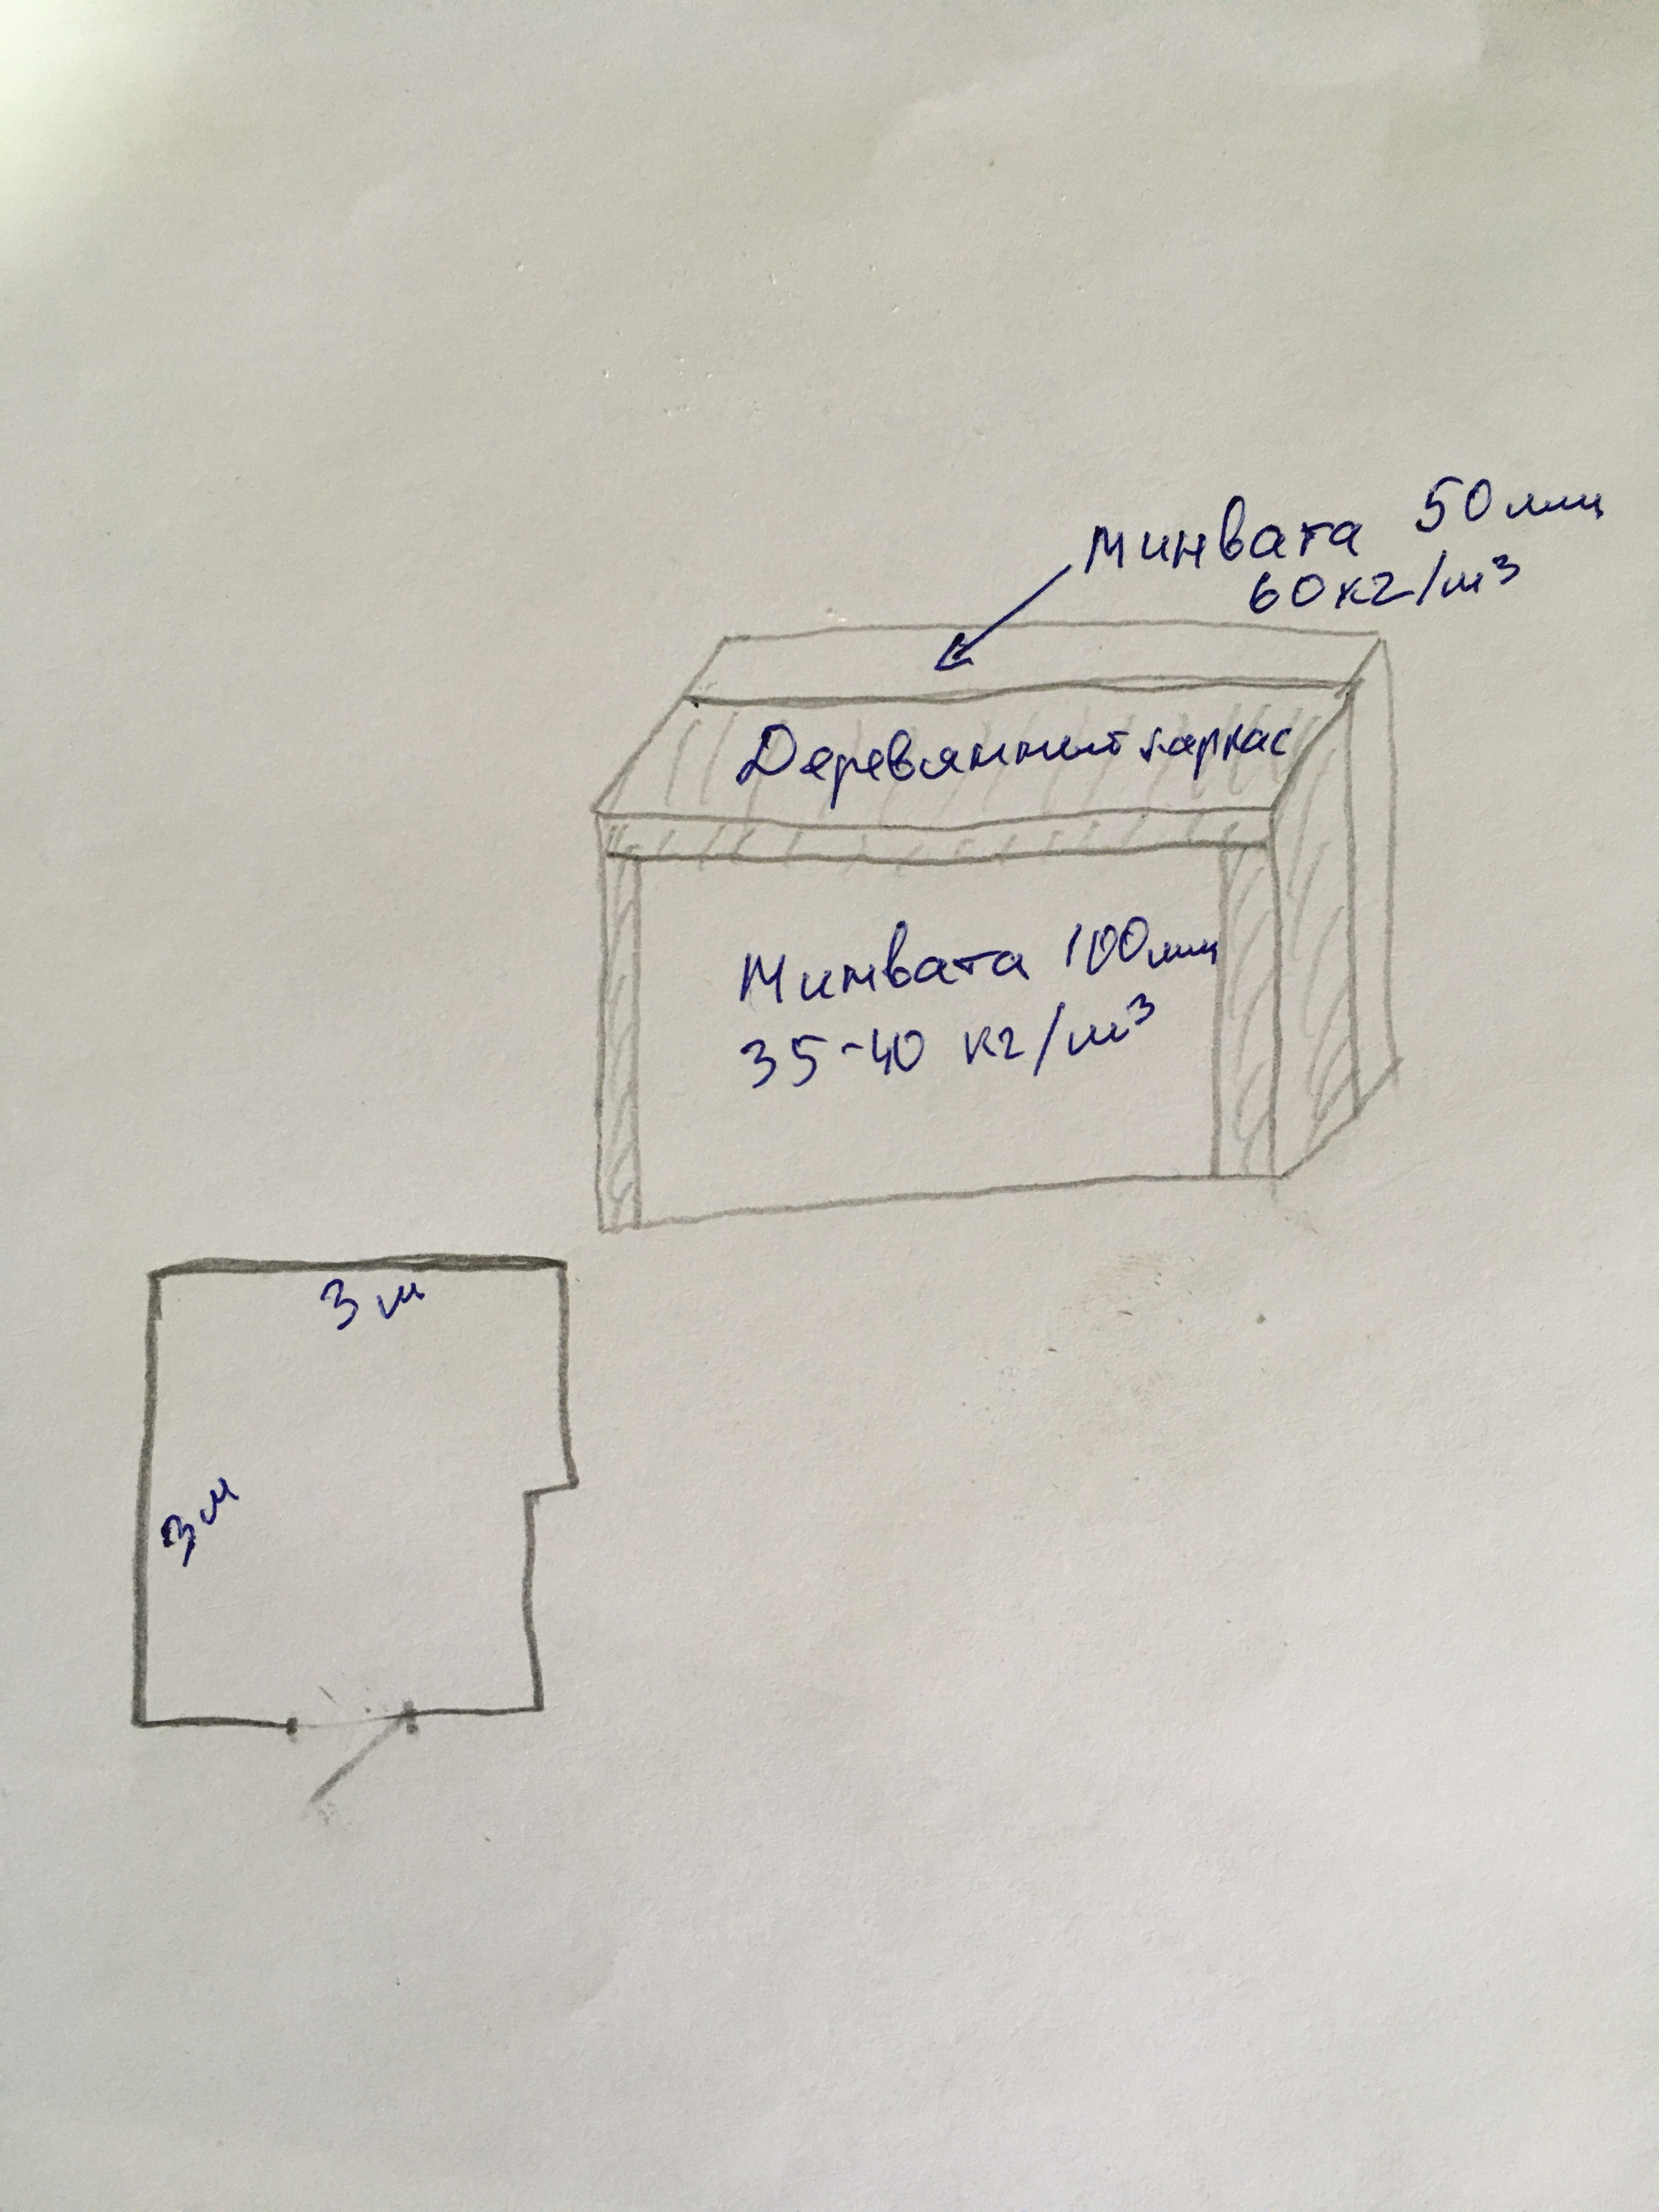 Минвата 50мм
60кг/м³
Деревянный каркас
Минвата 100мм
35-40 кг/м³
3м
3м